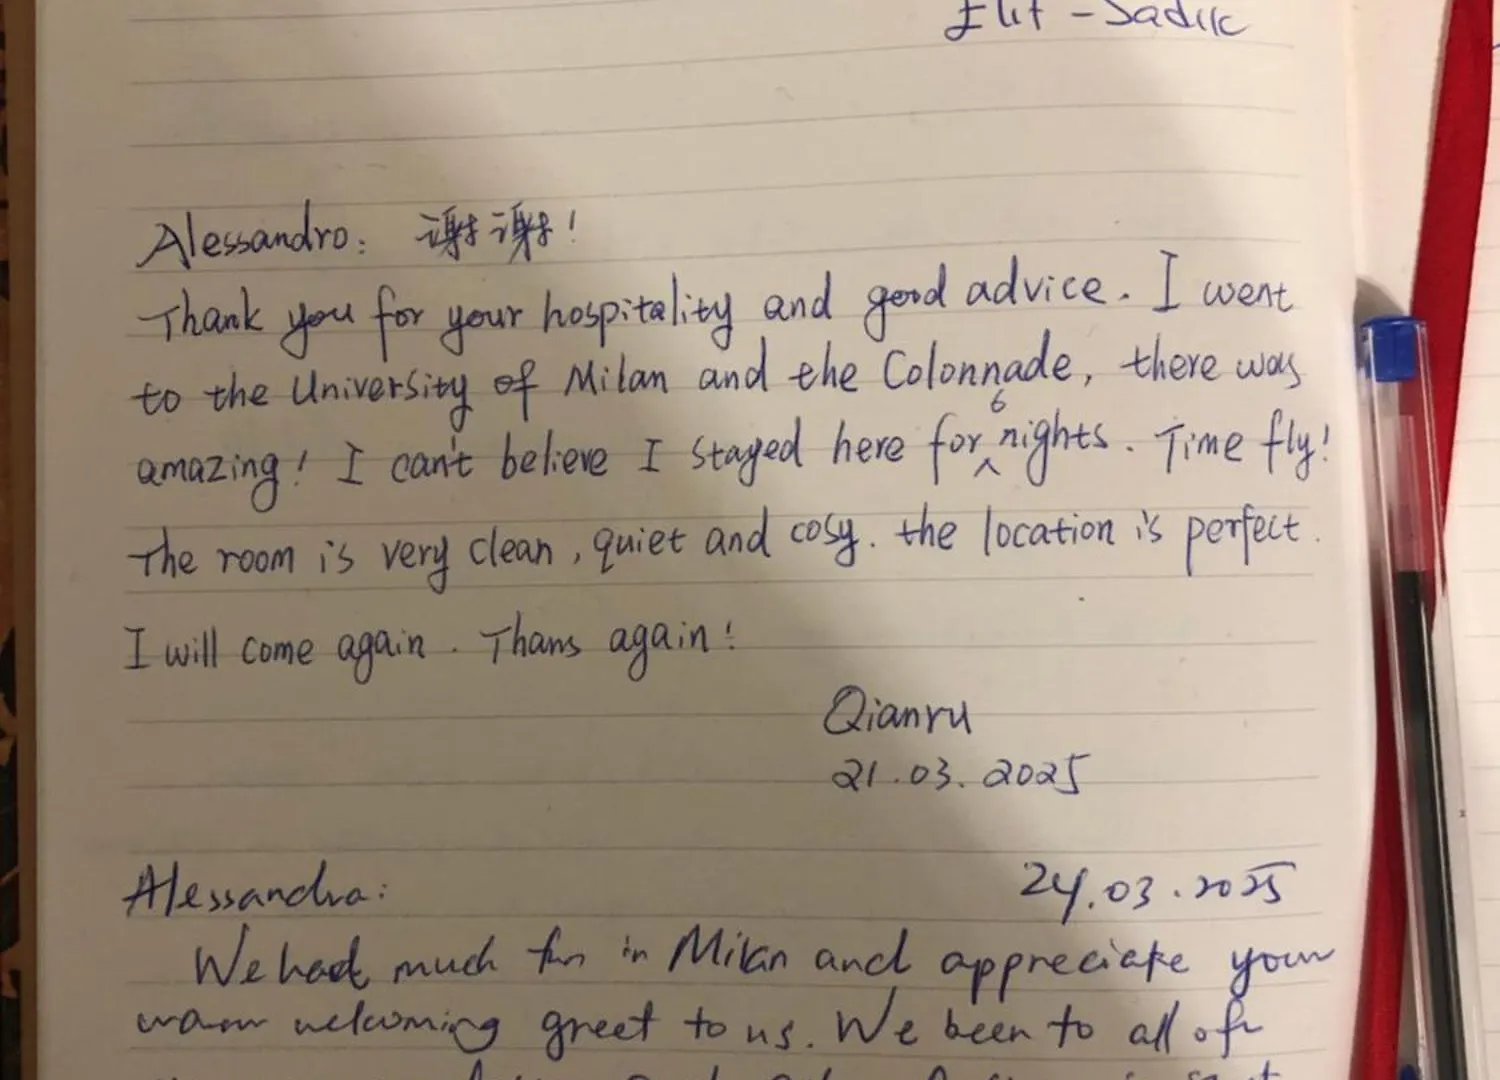 Elif - Sadık
Alessandro: 谢谢!
Thank you for your hospitality and good advice. I went
to the University of Milan and the Colonnade, there was
amazing! I can't believe I stayed here for 6 nights. Time fly!
The room is very clean, quiet and cosy. the location is perfect.
I will come again. Thans again!
Qianru
21.03.2025
Alessandra: 24.03.2025
We had much fun in Milan and appreciate your
warm welcoming greet to us. We been to all of